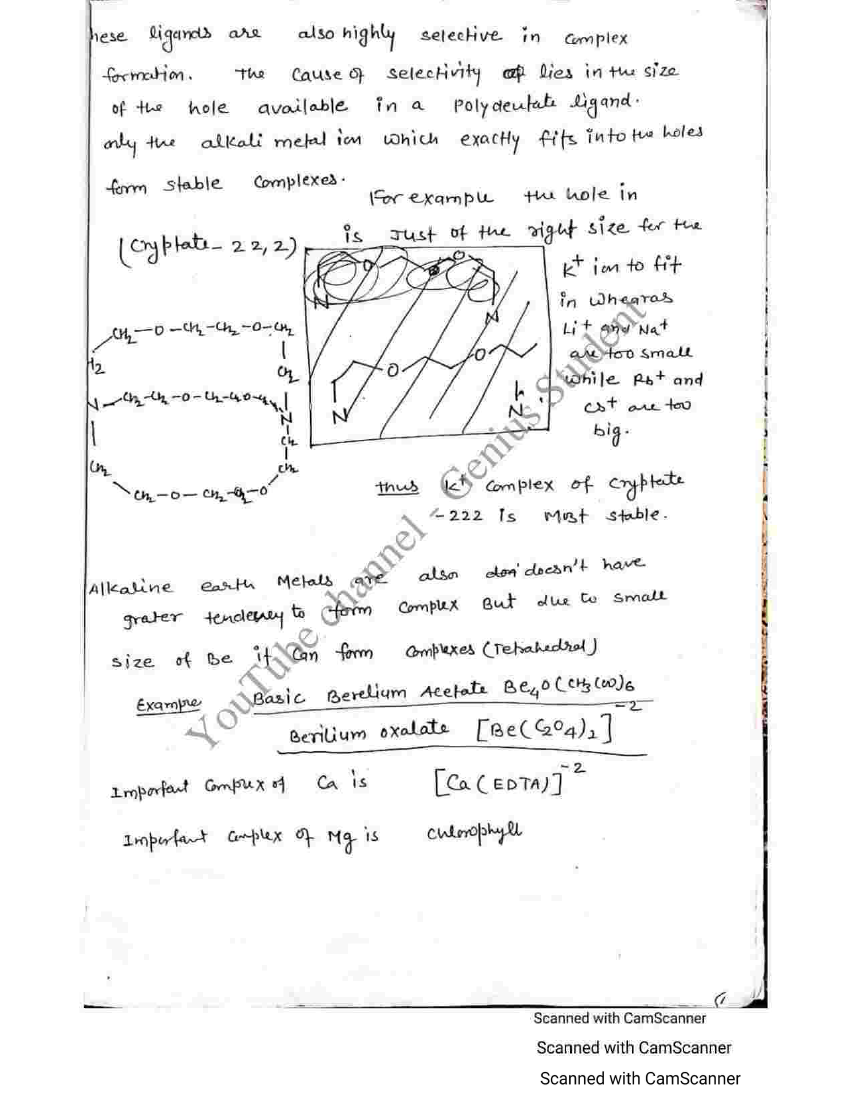 hese ligands are also highly selective in complex
formation. The cause of selectivity lies in the size
of the hole available in a polydeutate ligand.
only the alkali metal ion which exactly fits into the holes
form stable complexes.
For example the hole in
(Cryptate-22,2) is Just of the right size for the
K+ ion to fit
in whearas
Li+ and Na+
are too small
while Rb+ and
Cs+ are too
big.
N O O N
O O
N N
CH2-O-CH2-CH2-O-CH2
H2 CH2
N-CH2-CH2-O-CH2-
N
CH2 CH2
CH2
CH2-O-CH2-CH2-O
thus K+ complex of cryptate
-222 Is Most stable.
Alkaline earth Metals are also don' doesn't have
grater tendency to form complex But due to small
size of Be it can form complexes (Tetrahedral)
Example Basic Berelium Acetate Be4O(CH3COO)6
Berilium oxalate [Be(C2O4)2]-2
Important Complex of Ca is [Ca(EDTA)]-2
Important complex of Mg is chlorophyll
YouTube channel - Genius Student
Scanned with CamScanner
Scanned with CamScanner
Scanned with CamScanner